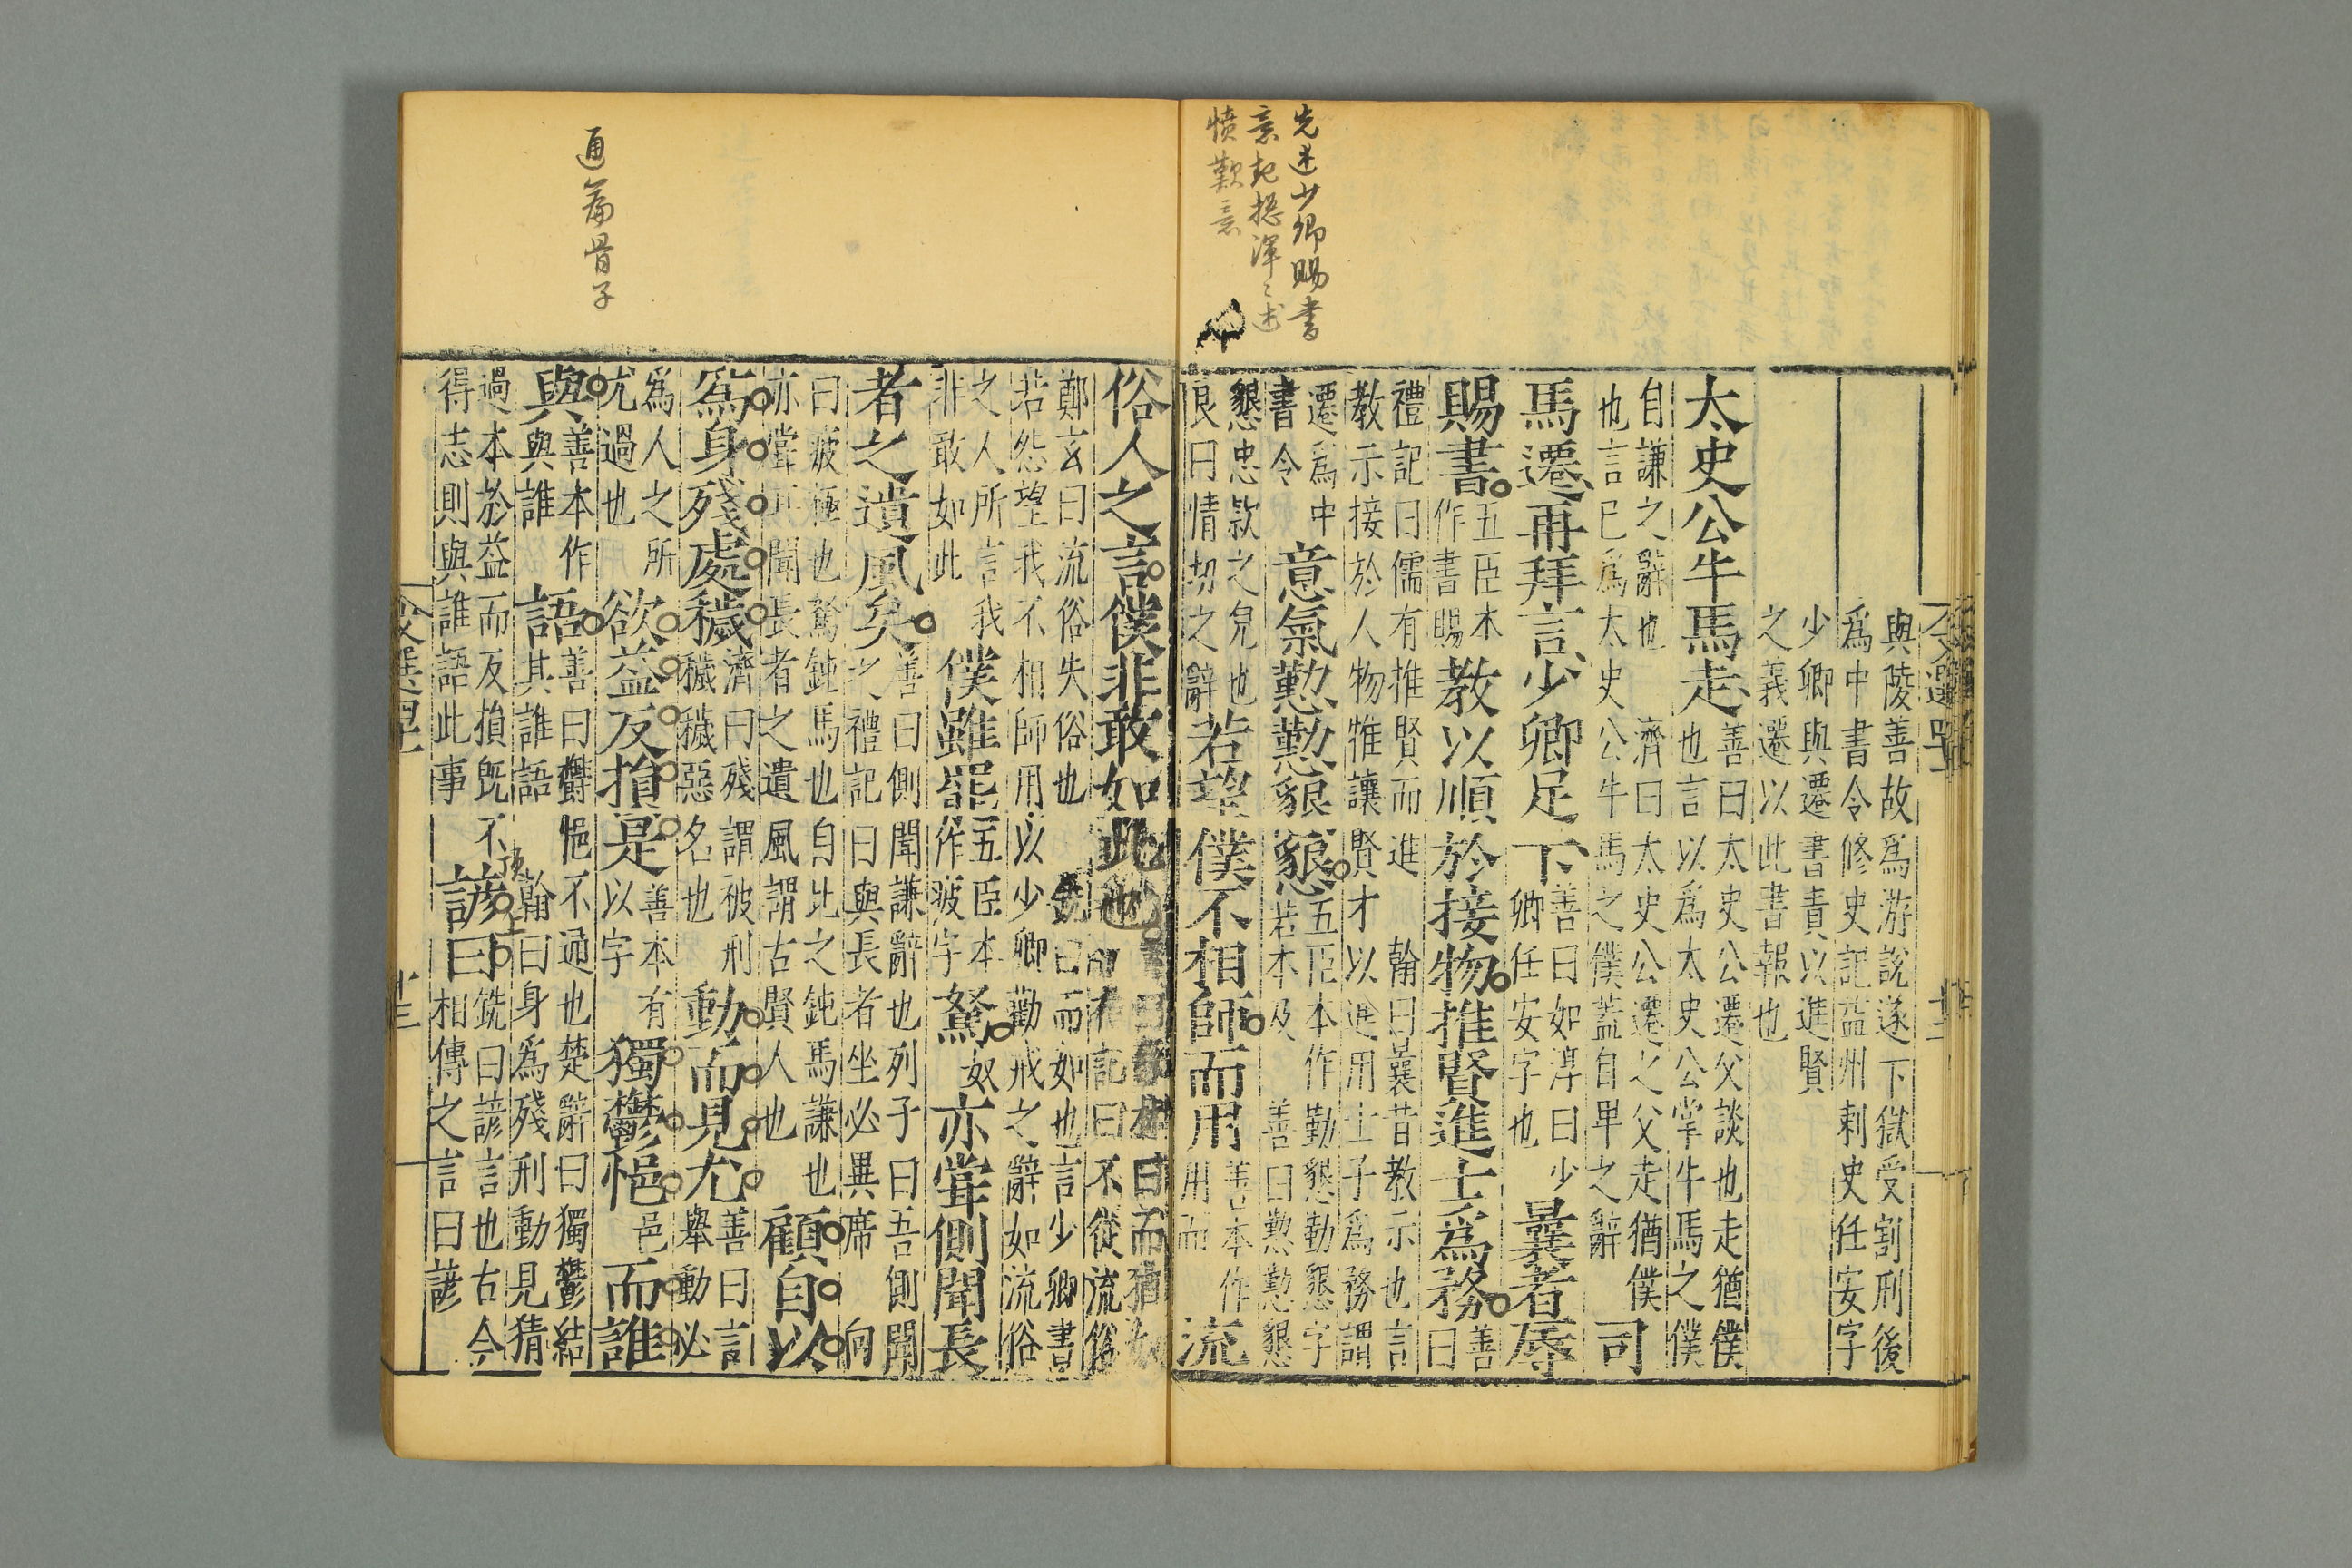 先述少卿賜書
意起揔渾〻述
憤歎意
與陵善故爲游說遂下獄受割刑後
爲中書令修史記益州刺史任安字
少卿與遷書責以進賢
之義遷以此書報也
太史公牛馬走
善曰太史公遷父談也走猶僕
也言以爲太史公掌牛馬之僕
自謙之辭也 濟曰太史公遷之父走猶僕
也言已爲太史公牛馬之僕蓋自卑之辭
司
馬遷再拜言少卿足下
善曰如淳曰少
卿任安字也
曩者辱
賜書
五臣本
作書賜
教以順於接物推賢進士爲務
善
曰
禮記曰儒有推賢而進 翰曰曩昔教示也言
教示接於人物惟讓賢才以進用士子爲務謂
遷爲中
書令
意氣懃懃懇懇
五臣本作勤懇勤懇字
若本及 善曰懃懃懇
懇忠欵之皃也
良曰情切之辭
若望僕不相師而用
善本作
用而
流
文選四十一
通篇骨子
俗人之言僕非敢如此也
曰而猶如
記曰不從流俗
鄭玄曰流俗失俗也 銑曰而如也言少卿書
若怨望我不相師用以少卿勸戒之辭如流俗
之人所言我
非敢如此
僕雖罷
五臣本
作疲字
駑
奴
亦甞側聞長
者之遺風矣
善曰側聞謙辭也列子曰吾側聞
之禮記曰與長者坐必異席 向
曰疲極也駑鈍馬也自比之鈍馬謙也
亦當所聞長者之遺風謂古賢人也
顧自以
爲身殘處穢
濟曰殘謂被刑
穢穢惡名也
動而見尤
善曰言
舉動必
爲人之所
尤過也
欲益反損是
善本有
以字
獨鬱悒
邑
而誰
與
善本作
與誰
語
善曰鬱悒不通也楚辭曰獨鬱結
其誰語 翰曰身爲殘刑動見猜
過本於益而反損旣不
得志則與誰語此事
頂上
諺曰
銑曰諺言也古今
相傳之言曰諺
文選四十一
十三